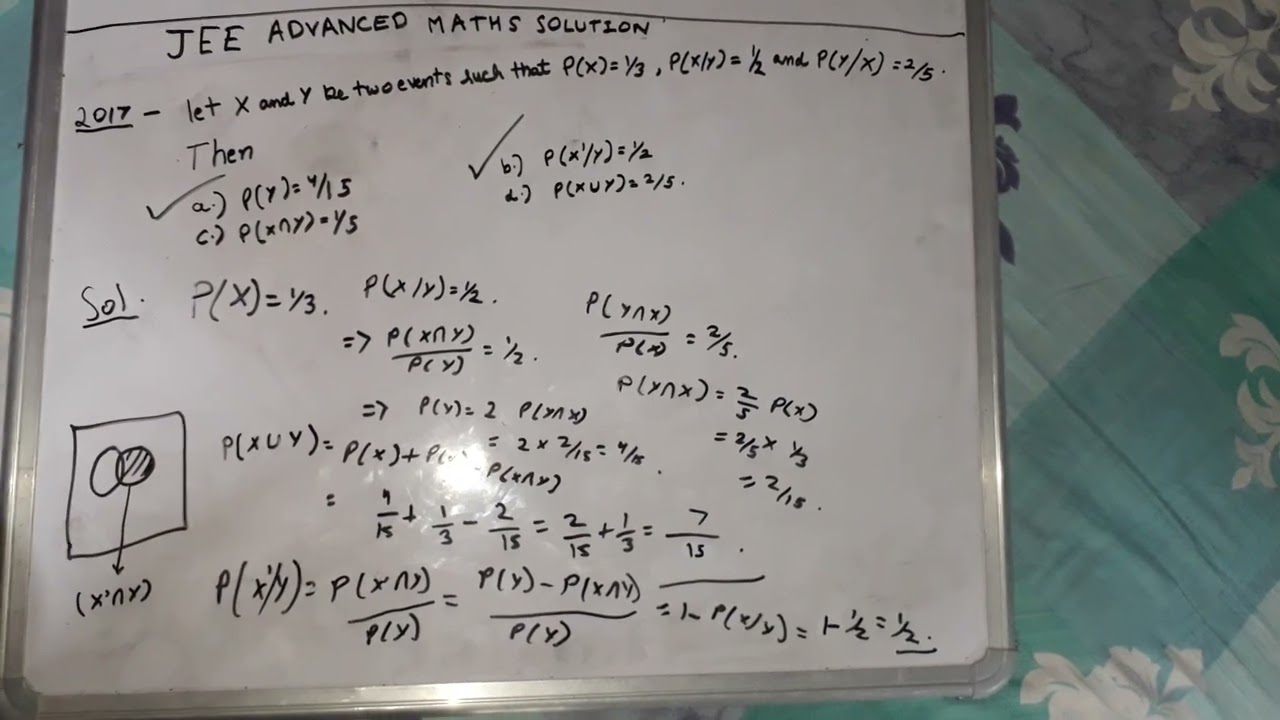 JEE ADVANCED MATHS SOLUTION
2017 - let X and Y be two events such that P(X)=1/3, P(X/Y)=1/2 and P(Y/X)=2/5.
Then
a.) P(Y)=4/15
b.) P(X'/Y)=1/2
c.) P(X∩Y)=1/5
d.) P(X∪Y)=2/5.
Sol. P(X)=1/3. P(X/Y)=1/2.
=> P(X∩Y)/P(Y) = 1/2.
=> P(Y)= 2 P(Y∩X)
= 2 × 2/15 = 4/15.
P(Y∩X)/P(X) = 2/5.
P(Y∩X) = 2/5 P(X)
= 2/5 × 1/3
= 2/15.
P(X∪Y) = P(X) +
- P(X∩Y)
= 4/15 + 1/3 - 2/15 = 2/15 + 1/3 = 7/15.
(X'∩Y)
P(X'/Y) = P(X'∩Y)/P(Y) = P(Y) - P(X∩Y)/P(Y) = 1 - P(X/Y) = 1 - 1/2 = 1/2.